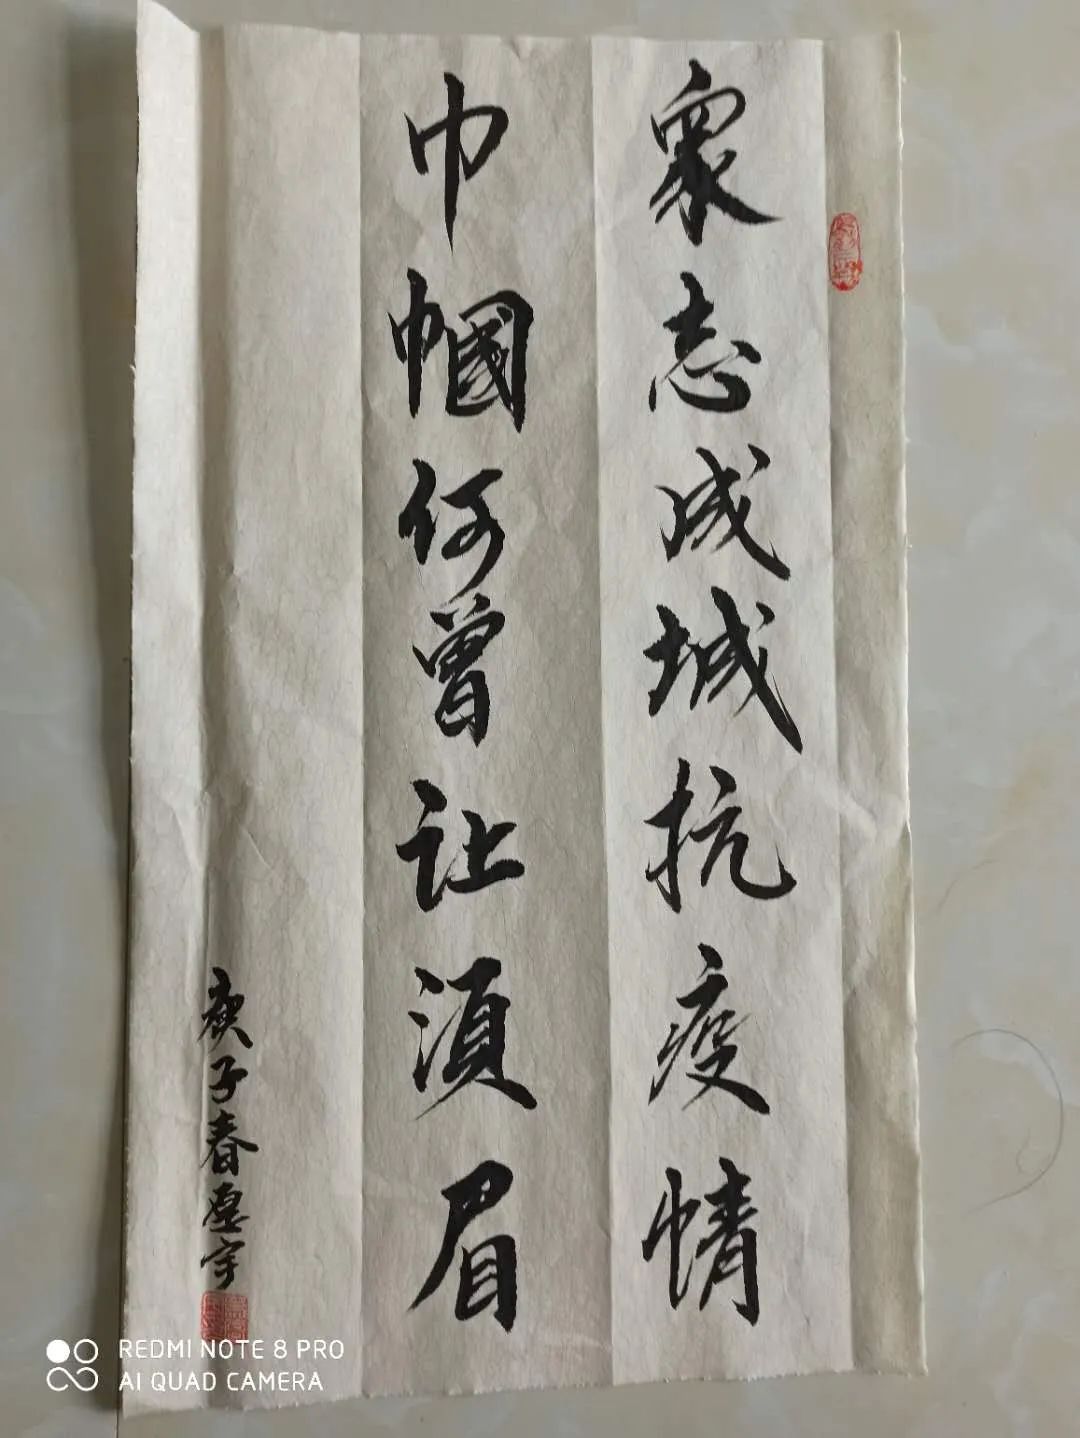 衆志成城抗疫情
巾帼何曾让须眉
庚子春
REDMI NOTE 8 PRO
AI QUAD CAMERA